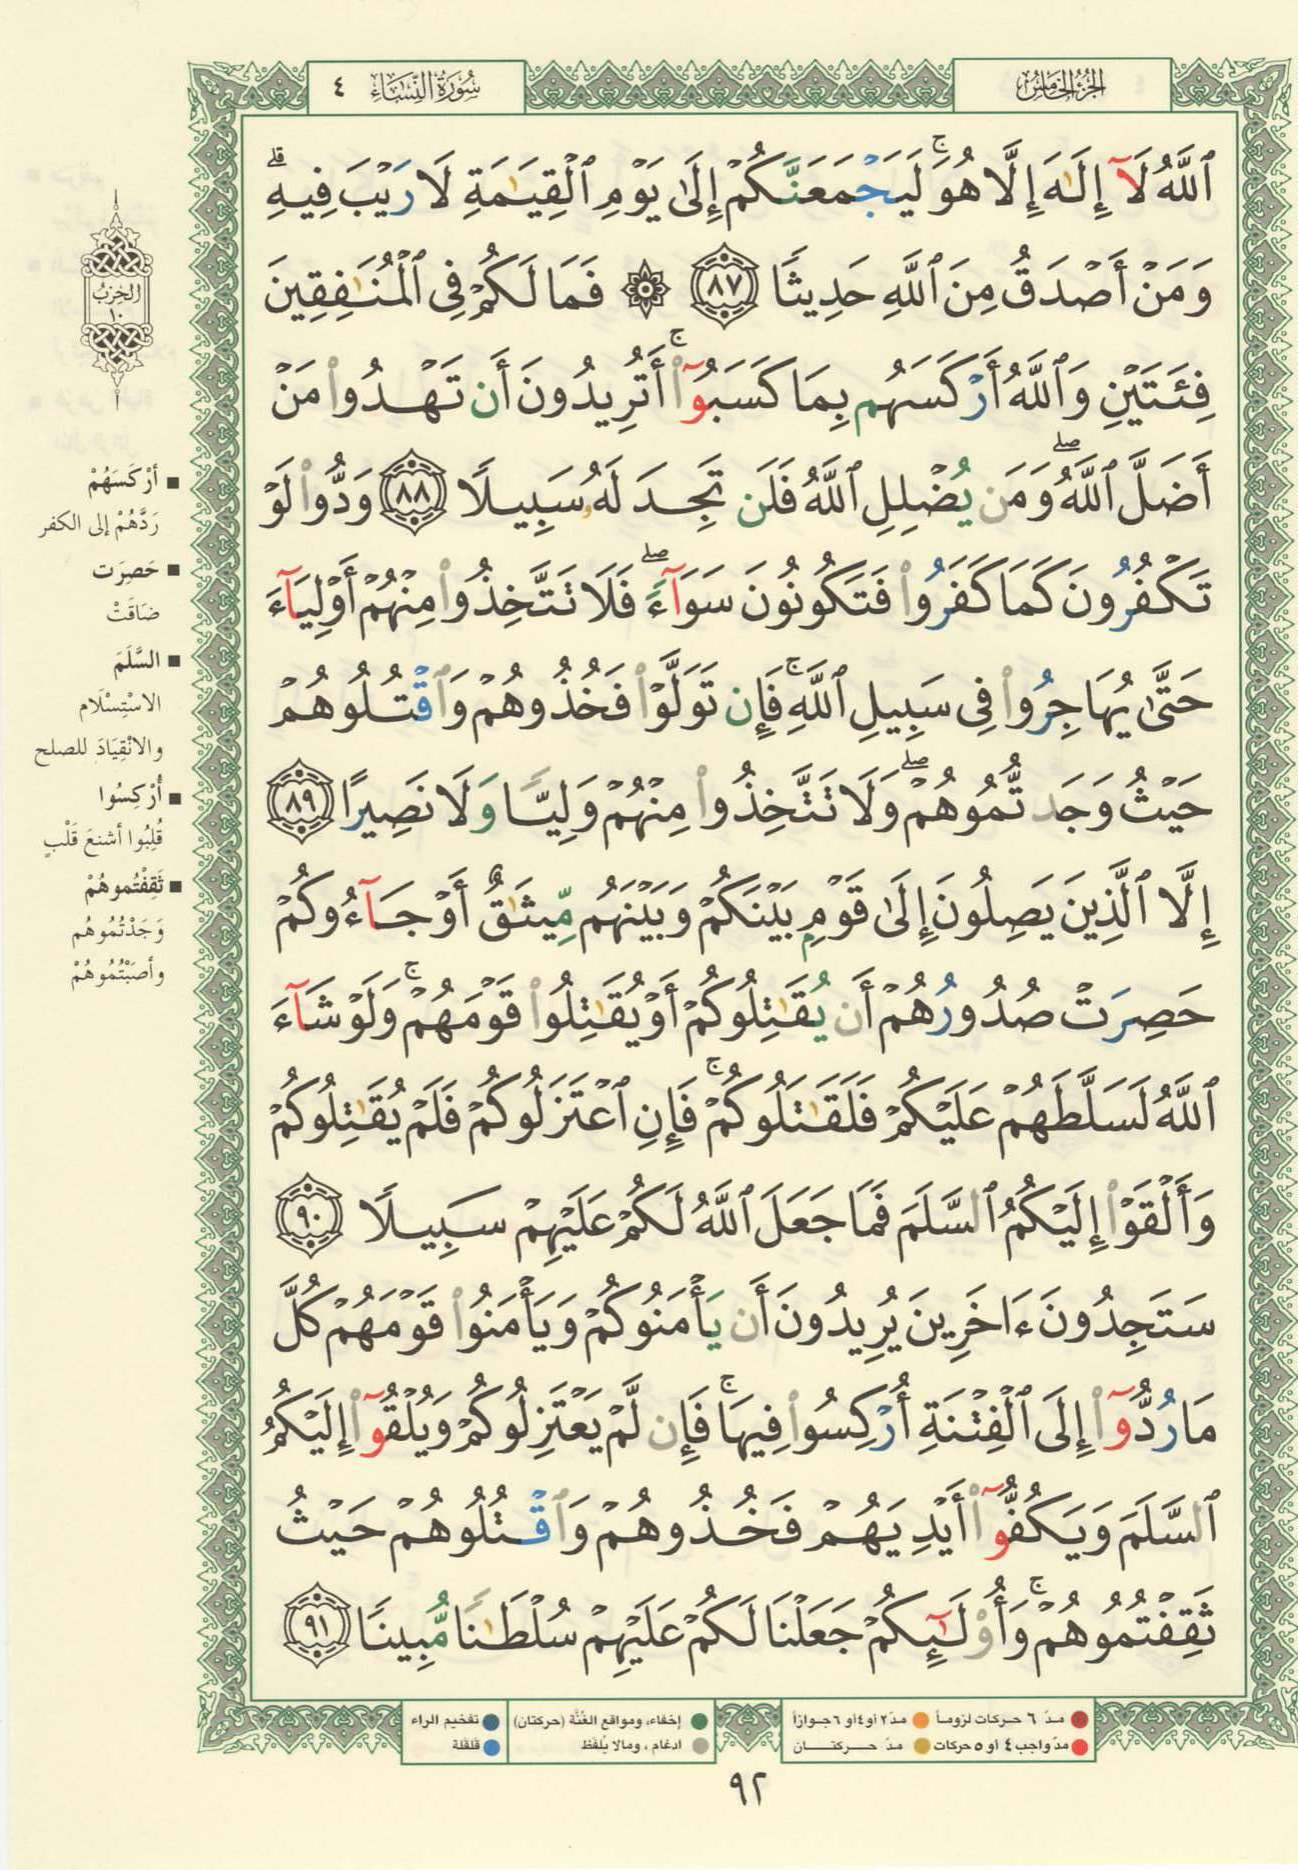 الجزء الخامس
سورة النساء ٤
ٱللَّهُ لَآ إِلَٰهَ إِلَّا هُوَ ۚ لَيَجْمَعَنَّكُمْ إِلَىٰ يَوْمِ ٱلْقِيَٰمَةِ لَا رَيْبَ فِيهِ ۗ
وَمَنْ أَصْدَقُ مِنَ ٱللَّهِ حَدِيثًا ٨٧ ۞ فَمَا لَكُمْ فِى ٱلْمُنَٰفِقِينَ
فِئَتَيْنِ وَٱللَّهُ أَرْكَسَهُم بِمَا كَسَبُوٓا۟ ۚ أَتُرِيدُونَ أَن تَهْدُوا۟ مَنْ
أَضَلَّ ٱللَّهُ ۖ وَمَن يُضْلِلِ ٱللَّهُ فَلَن تَجِدَ لَهُۥ سَبِيلًا ٨٨ وَدُّوا۟ لَوْ
تَكْفُرُونَ كَمَا كَفَرُوا۟ فَتَكُونُونَ سَوَآءً ۖ فَلَا تَتَّخِذُوا۟ مِنْهُمْ أَوْلِيَآءَ
حَتَّىٰ يُهَاجِرُوا۟ فِى سَبِيلِ ٱللَّهِ ۚ فَإِن تَوَلَّوْا۟ فَخُذُوهُمْ وَٱقْتُلُوهُمْ
حَيْثُ وَجَدتُّمُوهُمْ ۖ وَلَا تَتَّخِذُوا۟ مِنْهُمْ وَلِيًّا وَلَا نَصِيرًا ٨٩
إِلَّا ٱلَّذِينَ يَصِلُونَ إِلَىٰ قَوْمٍۭ بَيْنَكُمْ وَبَيْنَهُم مِّيثَٰقٌ أَوْ جَآءُوكُمْ
حَصِرَتْ صُدُورُهُمْ أَن يُقَٰتِلُوكُمْ أَوْ يُقَٰتِلُوا۟ قَوْمَهُمْ ۚ وَلَوْ شَآءَ
ٱللَّهُ لَسَلَّطَهُمْ عَلَيْكُمْ فَلَقَٰتَلُوكُمْ ۚ فَإِنِ ٱعْتَزَلُوكُمْ فَلَمْ يُقَٰتِلُوكُمْ
وَأَلْقَوْا۟ إِلَيْكُمُ ٱلسَّلَمَ فَمَا جَعَلَ ٱللَّهُ لَكُمْ عَلَيْهِمْ سَبِيلًا ٩٠
سَتَجِدُونَ ءَاخَرِينَ يُرِيدُونَ أَن يَأْمَنُوكُمْ وَيَأْمَنُوا۟ قَوْمَهُمْ كُلَّ
مَا رُدُّوٓا۟ إِلَى ٱلْفِتْنَةِ أُرْكِسُوا۟ فِيهَا ۚ فَإِن لَّمْ يَعْتَزِلُوكُمْ وَيُلْقُوٓا۟ إِلَيْكُمُ
ٱلسَّلَمَ وَيَكُفُّوٓا۟ أَيْدِيَهُمْ فَخُذُوهُمْ وَٱقْتُلُوهُمْ حَيْثُ
ثَقِفْتُمُوهُمْ ۚ وَأُو۟لَٰٓئِكُمْ جَعَلْنَا لَكُمْ عَلَيْهِمْ سُلْطَٰنًا مُّبِينًا ٩١
الحزب
١٠
■ أَرْكَسَهُمْ
رَدَّهُمْ إلى الكفر
■ حَصِرَت
ضَاقَتْ
■ السَّلَمَ
الاسْتِسْلَام
والانْقِيَادَ للصلح
■ أُرْكِسُوا
قُلِبُوا أشنعَ قَلْبٍ
■ ثَقِفْتُموهُمْ
وَجَدْتُمُوهُم
وأصَبْتُمُوهُمْ
مدّ ٦ حركات لزوماً
مدّ ٢ أو ٤ أو ٦ جوازاً
مدّ واجب ٤ أو ٥ حركات
مدّ حركتان
إخفاء، ومواقع الغُنَّة (حركتان)
ادغام، ومالا يُلفَظ
تفخيم الراء
قلقلة
٩٢